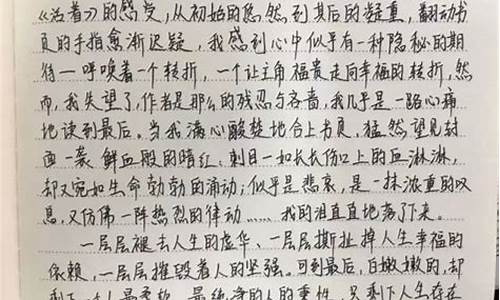 《活着》的感受,从初始的悠然到其后的凝重,翻动书
页的手指愈渐迟疑,我感到心中似乎有一种隐秘的期
待——呼唤着一个转折,一个让主角福贵走向幸福的转折,然
而,我失望了,作者是那么的残忍与吝啬,我几乎是一路心痛
地读到最后。当我满心酸楚地合上书页,猛然望见封
面一袭鲜血般的暗红,刺目一如长长伤口上的血淋淋,
却又宛如生命勃勃的涌动;似乎是悲哀,是一抹浓重的叹
息,又仿佛一阵热烈的律动……我的泪直直地落了下来。
一层层褪去人生的虚华、一层层撕扯掉人生幸福的
依赖,一层层摧毁着人的坚强。可到最后,白嫩嫩的,却
最柔软、最纯净的人的秉性,只剩下人生存在